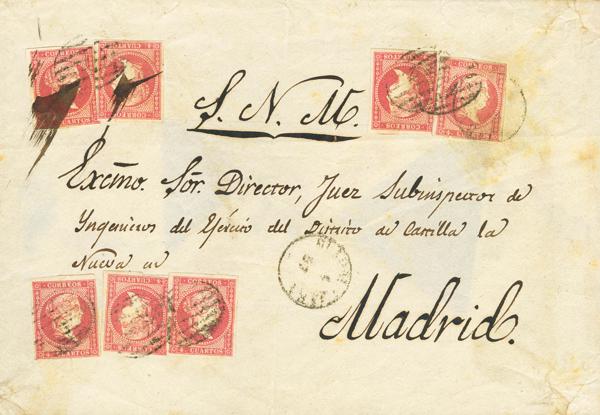 CORREOS
4 CUARTOS
4 CUARTOS
CUARTOS
CORREOS
S. N. M.
Excmo. Sór. Director, Juez Subinspector de
Ingenieros del Ejército del Distrito de Castilla la
Nueva en
Madrid.
CORREOS
4 CUARTOS
4 CUARTOS
CORREOS
CORREOS
4 CUARTOS